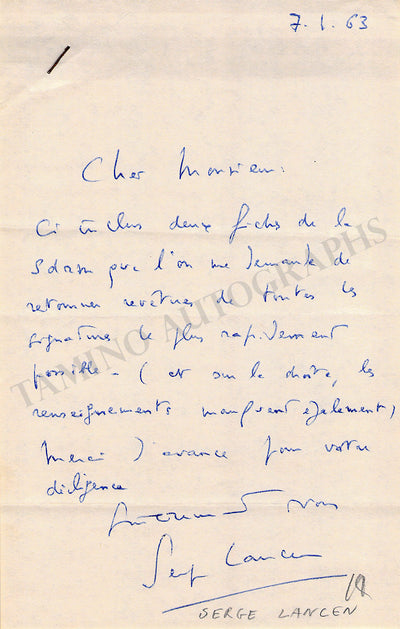 7.1.63
Cher Monsieur:
Ci inclus deux fiches de la
Sdrm que l'on me demande de
retourner revêtues de toutes les
signatures le plus rapidement
possible - (et sur la droite, les
renseignements manquent également)
Merci d'avance pour votre
diligence
vous
Serge Lancen
SERGE LANCEN
TAMINO AUTOGRAPHS